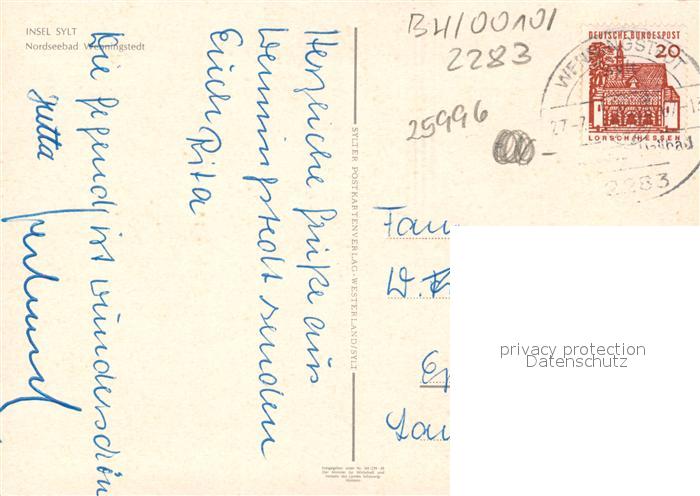 INSEL SYLT
Nordseebad Wenningstedt
B4/00101
2283
25996
DEUTSCHE BUNDESPOST
20
LORSCH/HESSEN
WENNINGSTEDT
2283
Herzliche Grüße aus
Wenningstedt senden
Euch Rita
Die Gegend ist wunderschön
Jutta
SYLTER POSTKARTENVERLAG-WESTERLAND/SYLT
Fam
W.
privacy protection
Datenschutz